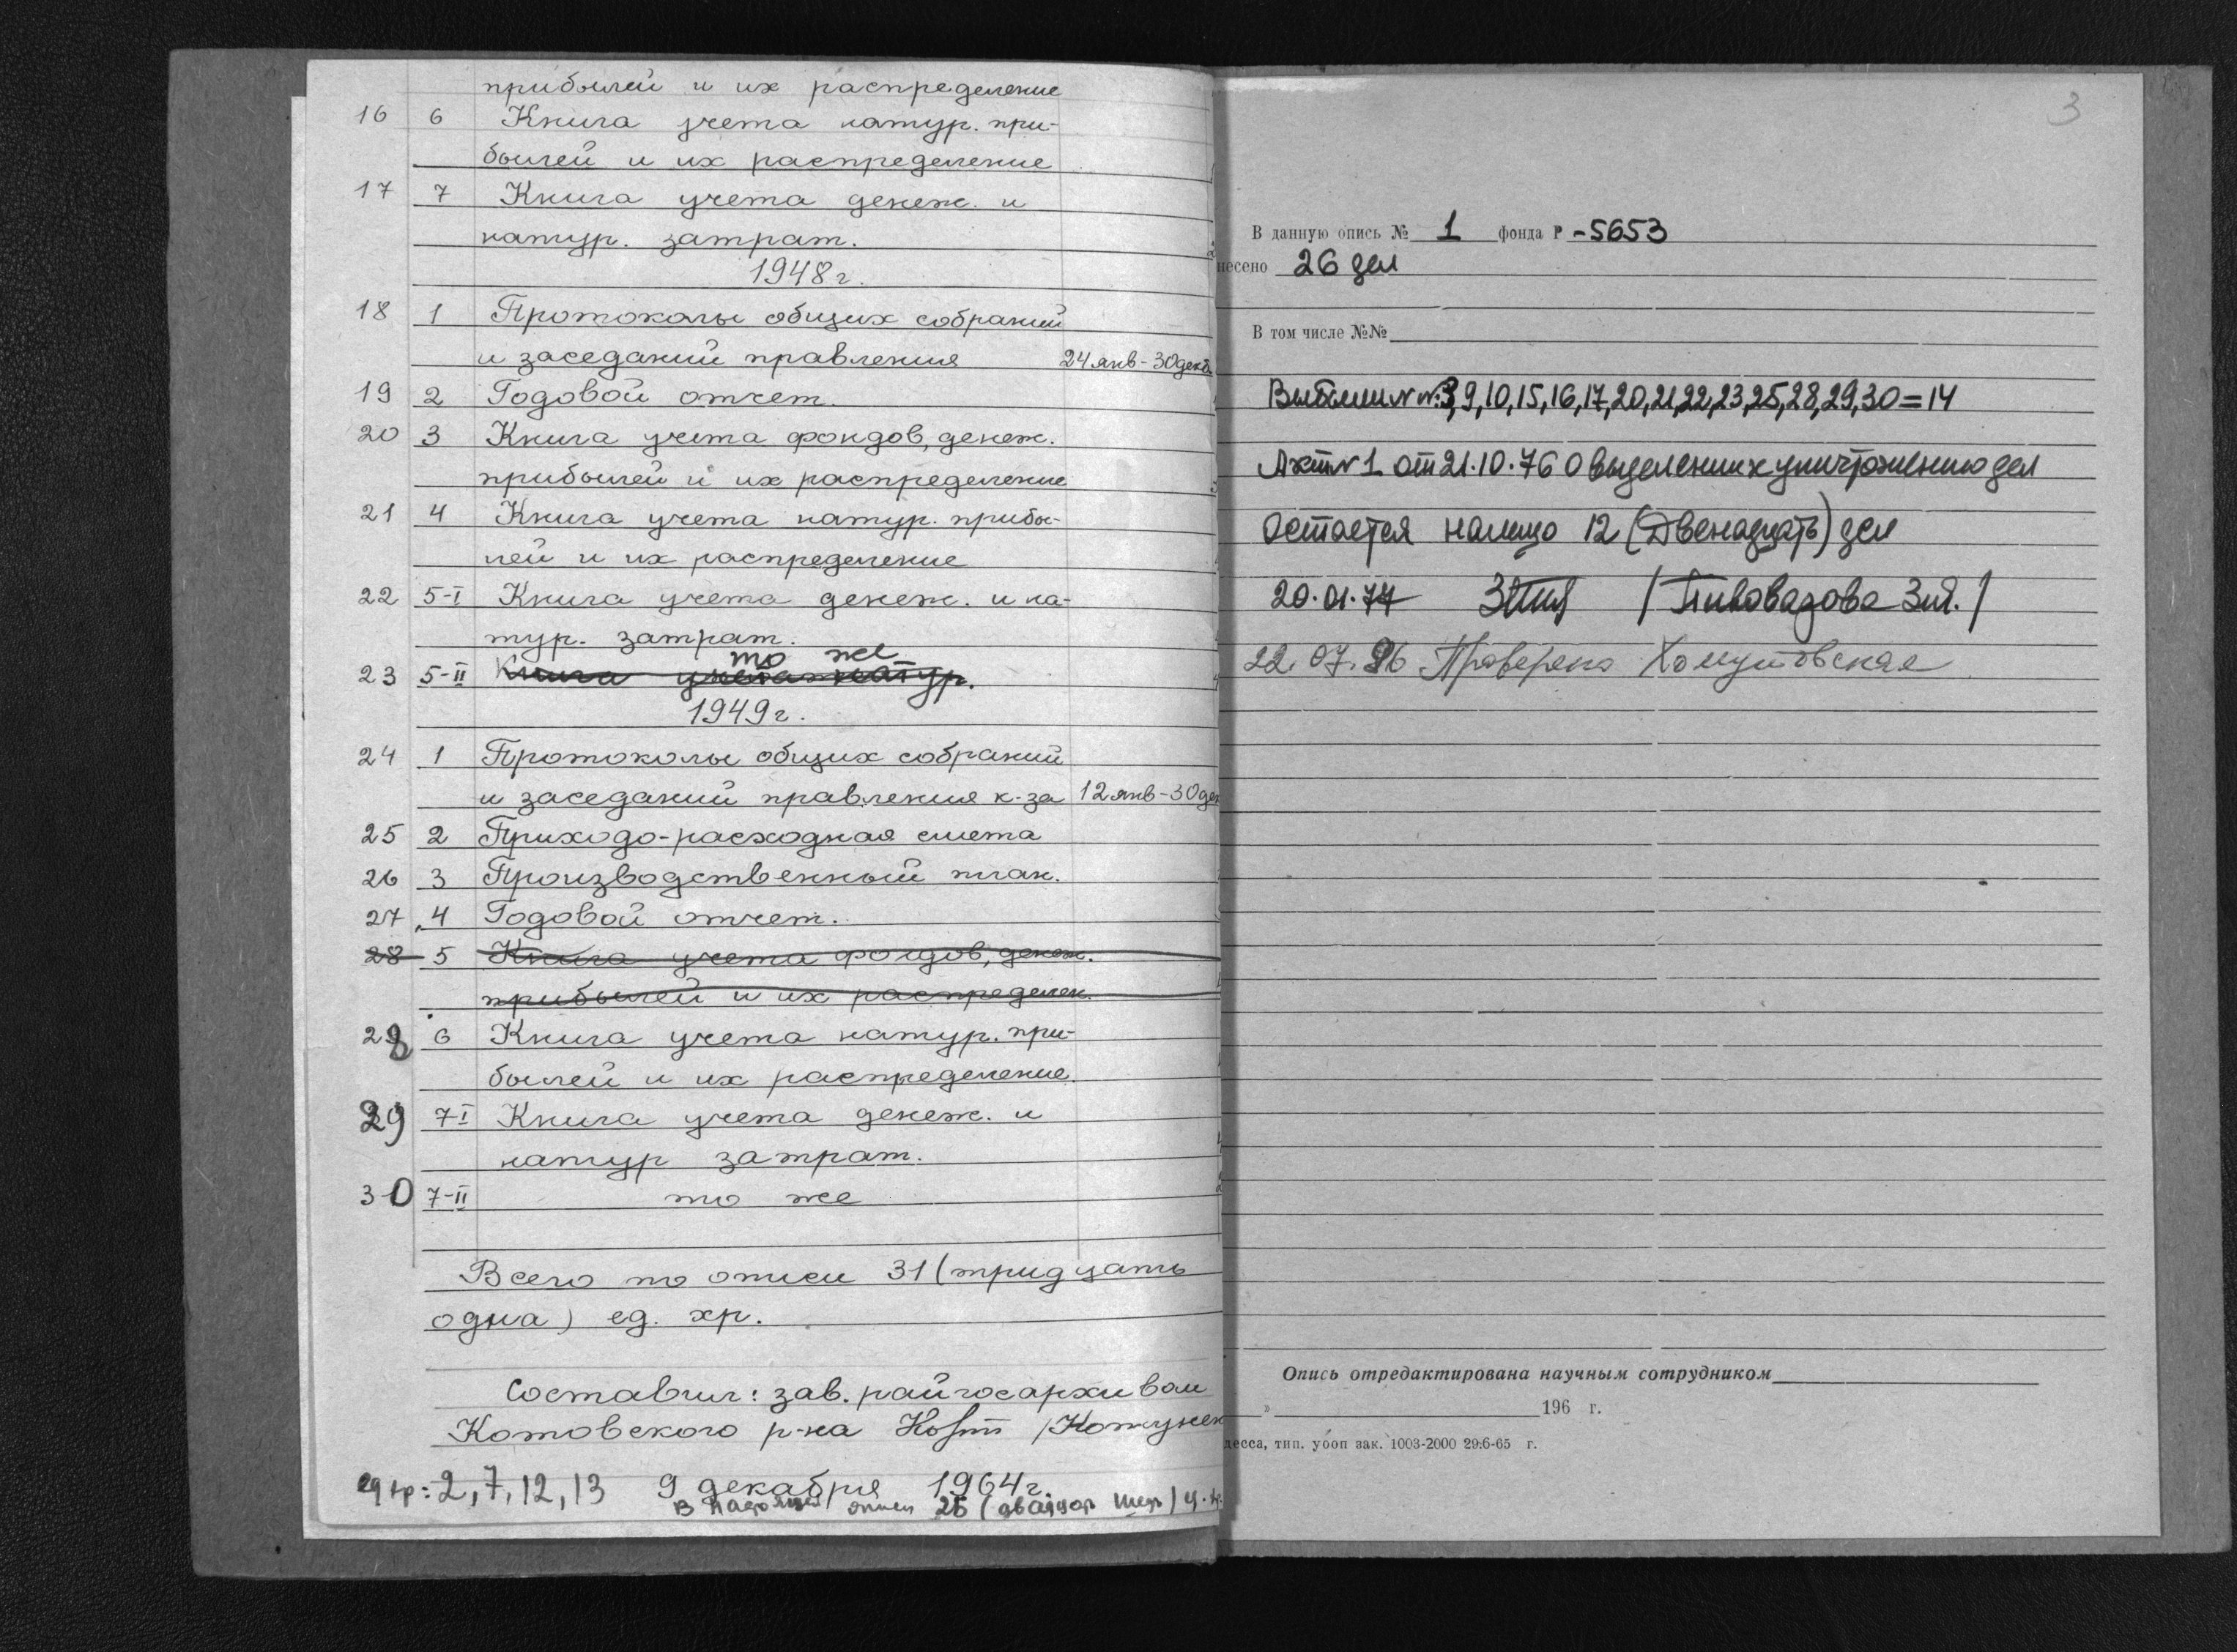 прибылей и их распределение
16 6 Книга учета натур. при-
былей и их распределение
17 7 Книга учета денеж. и
натур. затрат.
1948 г.
18 1 Протоколы общих собраний
и заседаний правления 24 янв - 30 дека
19 2 Годовой отчет.
20 3 Книга учета фондов, денеж.
прибылей и их распределение
21 4 Книга учета натур. прибы-
лей и их распределение
22 5-I Книга учета денеж. и на-
тур. затрат.
то же
23 5-II Книга учета натур.
1949 г.
24 1 Протоколы общих собраний
и заседаний правления к-за 12 янв - 30 дек
25 2 Приходо-расходная смета
26 3 Производственный план.
27 4 Годовой отчет.
28 5 Книга учета фондов, денеж.
прибылей и их распределен.
28 6 Книга учета натур. при-
былей и их распределение.
29 7-I Книга учета денеж. и
натур затрат.
30 7-II то же
Всего по описи 31 (тридцать
одна) ед. хр.
Составил: зав. райгосархивом
Котовского р-на
2, 7, 12, 13 9 декабря 1964 г.
В описи 26
3
В данную опись № 1 фонда Р -5653
несено 26 дел
В том числе №№
Выбыли №№: 3, 9, 10, 15, 16, 17, 20, 21, 22, 23, 25, 28, 29, 30 = 14
Акт № 1 от 21.10.76 О выделении к уничтожению дел
Остается налицо 12 (Двенадцать) дел
20.01.77 / Пивоварова З.Я. /
22.07.86 Проверено Хомутовская
Опись отредактирована научным сотрудником
» 196 г.
десса, тип. уооп зак. 1003-2000 29.6-65 г.